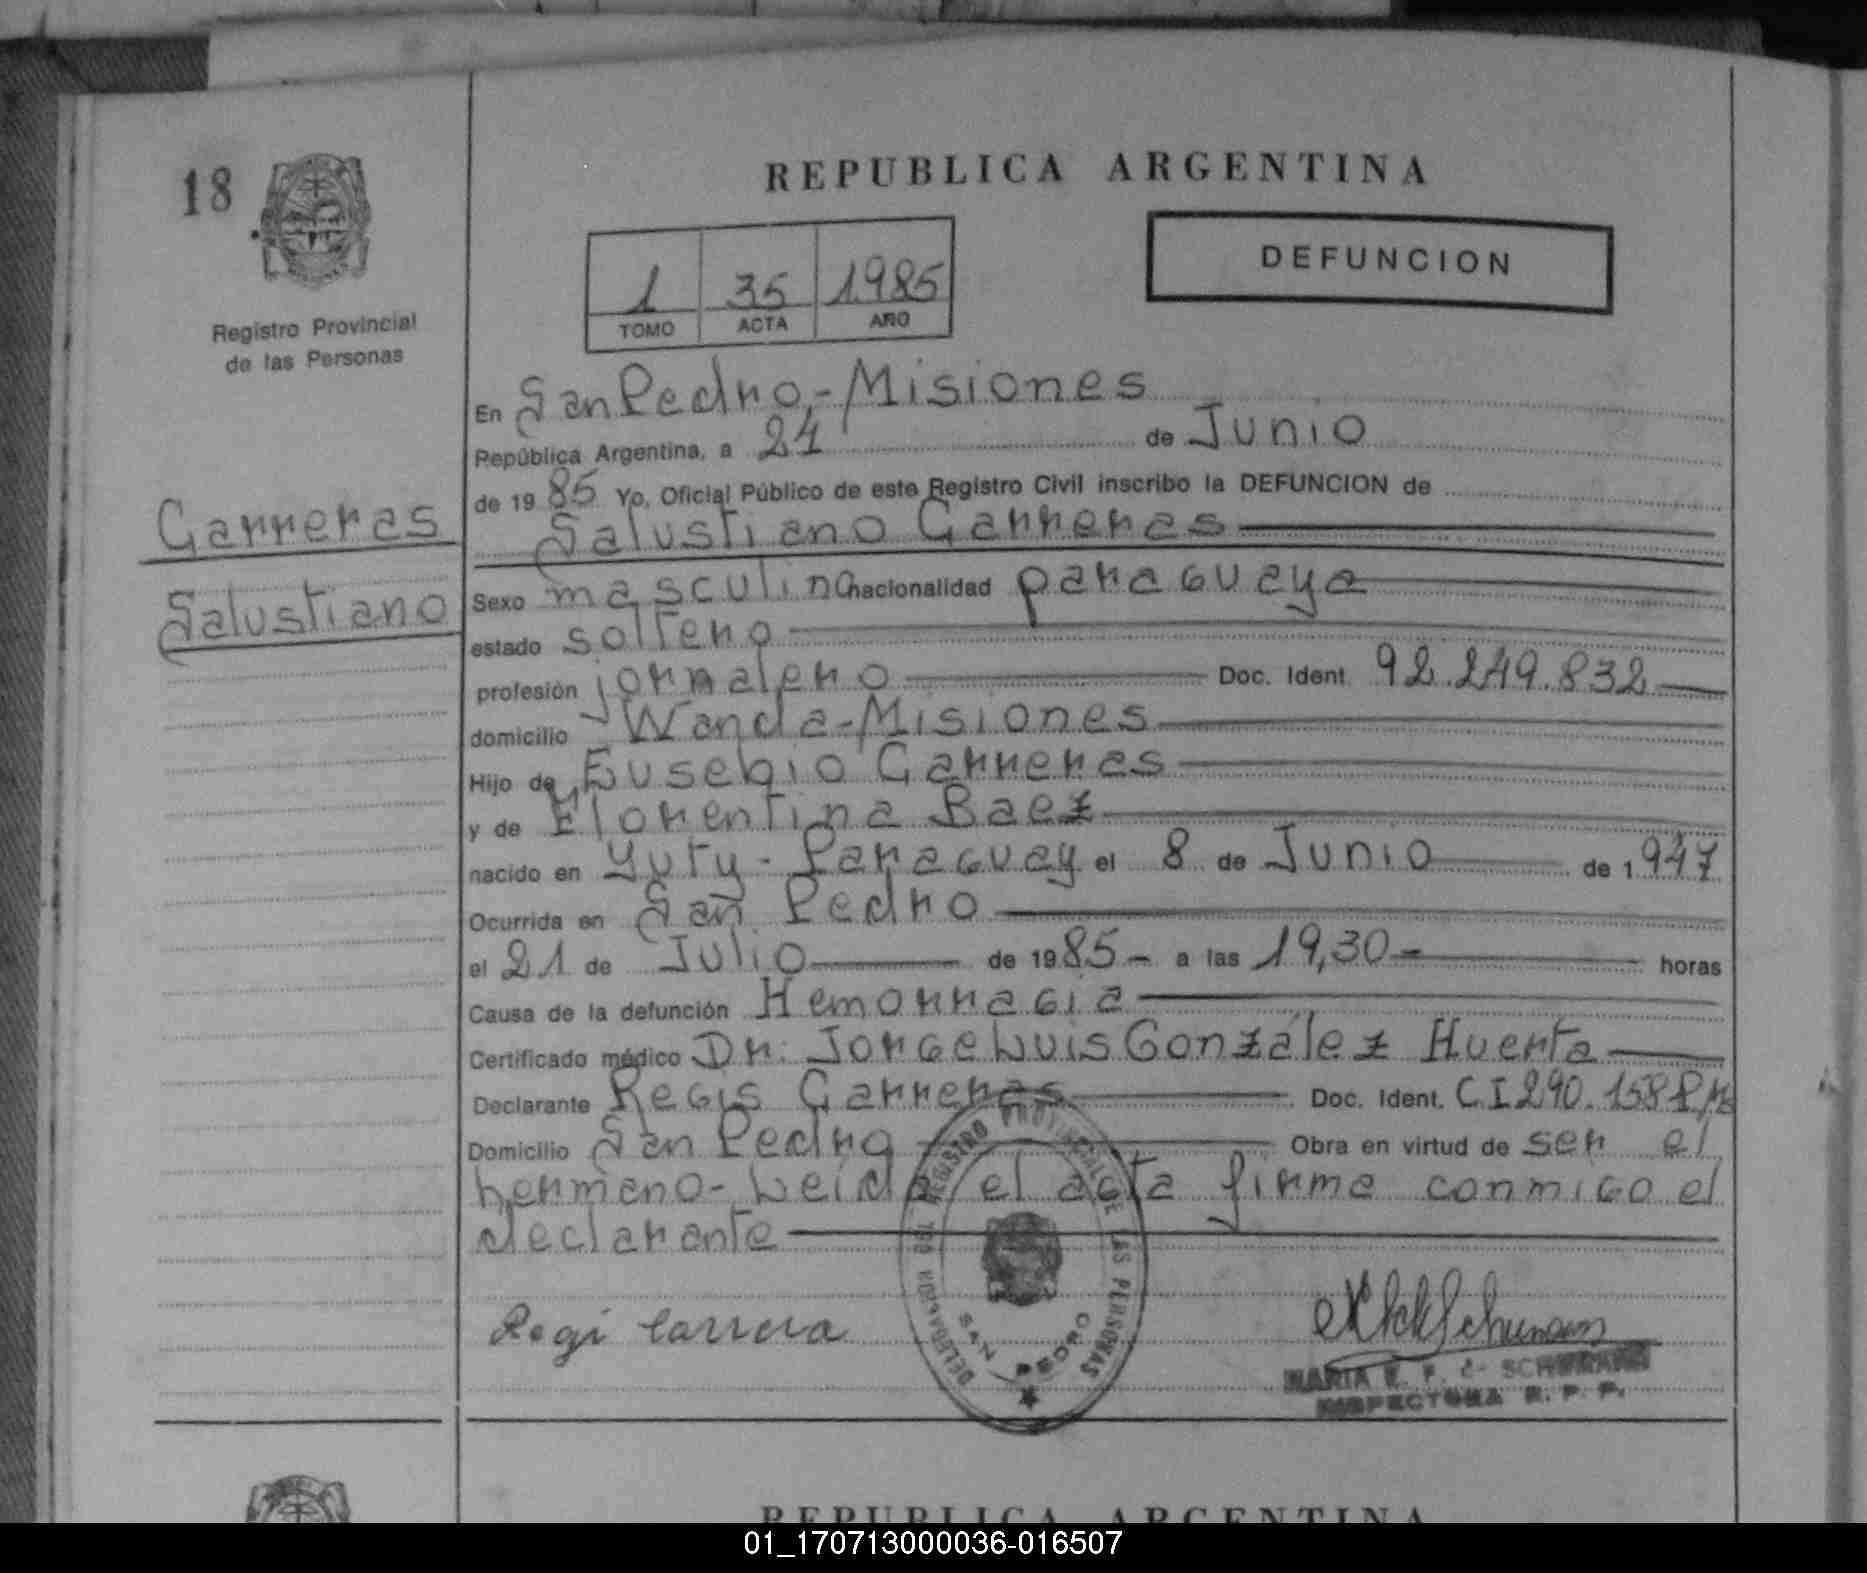 18
REPUBLICA ARGENTINA
DEFUNCION
1 35 1985
TOMO ACTA AÑO
Registro Provincial
de las Personas
Carreras
Salustiano
En San Pedro,-Misiones
República Argentina, a 24 de Junio
de 1985 Yo, Oficial Público de este Registro Civil inscribo la DEFUNCION de
Salustiano Carreras
Sexo masculino nacionalidad paraguaya
estado soltero
profesión jornalero Doc. Ident. 92.249.832
domicilio Wanda-Misiones
Hijo de Eusebio Carreras
y de Florentina Baez
nacido en Yuty - Paraguay el 8 de Junio de 1947
Ocurrida en San Pedro
el 21 de Julio de 1985 - a las 19,30 - horas
Causa de la defunción Hemorragia
Certificado médico Dr: Jorge Luis González Huerta
Declarante Regis Carreras Doc. Ident. CI 290.158
Domicilio San Pedro Obra en virtud de ser el
hermano- Leida el acta firma conmigo el
declarante
Regi Carrera
REGISTRO PROVINCIAL DE LAS PERSONAS
DELEGACION
SAN PEDRO
MARIA E. F. de SCHURMANN
INSPECTORA R. P. P.
REPUBLICA ARGENTINA
01_170713000036-016507